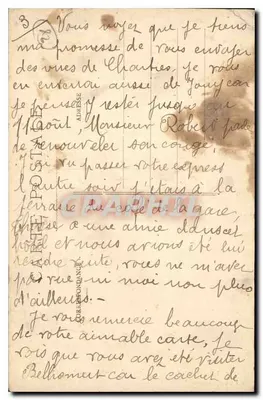 3
Vous voyez que je tiens
ma promesse de vous envoyer
des vues de Chartres, je vous
en enverrai aussi de Jouy car
je pense y rester jusque
Août, Monsieur Robert
de renouveler son congé,
vu passer votre express
l'autre soir j'étais à la
de la gare,
une amie
et nous avions été lui
rendre visite, vous ne m'avez
pas vue ni moi non plus
d'ailleurs.—
Je vous remercie beaucoup
de votre aimable carte, je
vois que vous avez été visiter
Belhomert car le cachet de
CARTE POSTALE
ADRESSE
CORRESPONDANCE